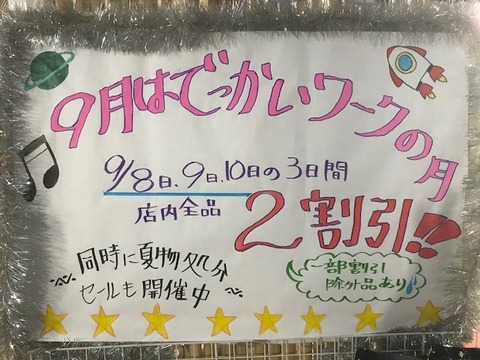 9月はでっかいワークの月
9/8日、9日、10日の3日間
店内全品
2割引!!
同時に夏物処分
セールも開催中
一部割引
除外品あり